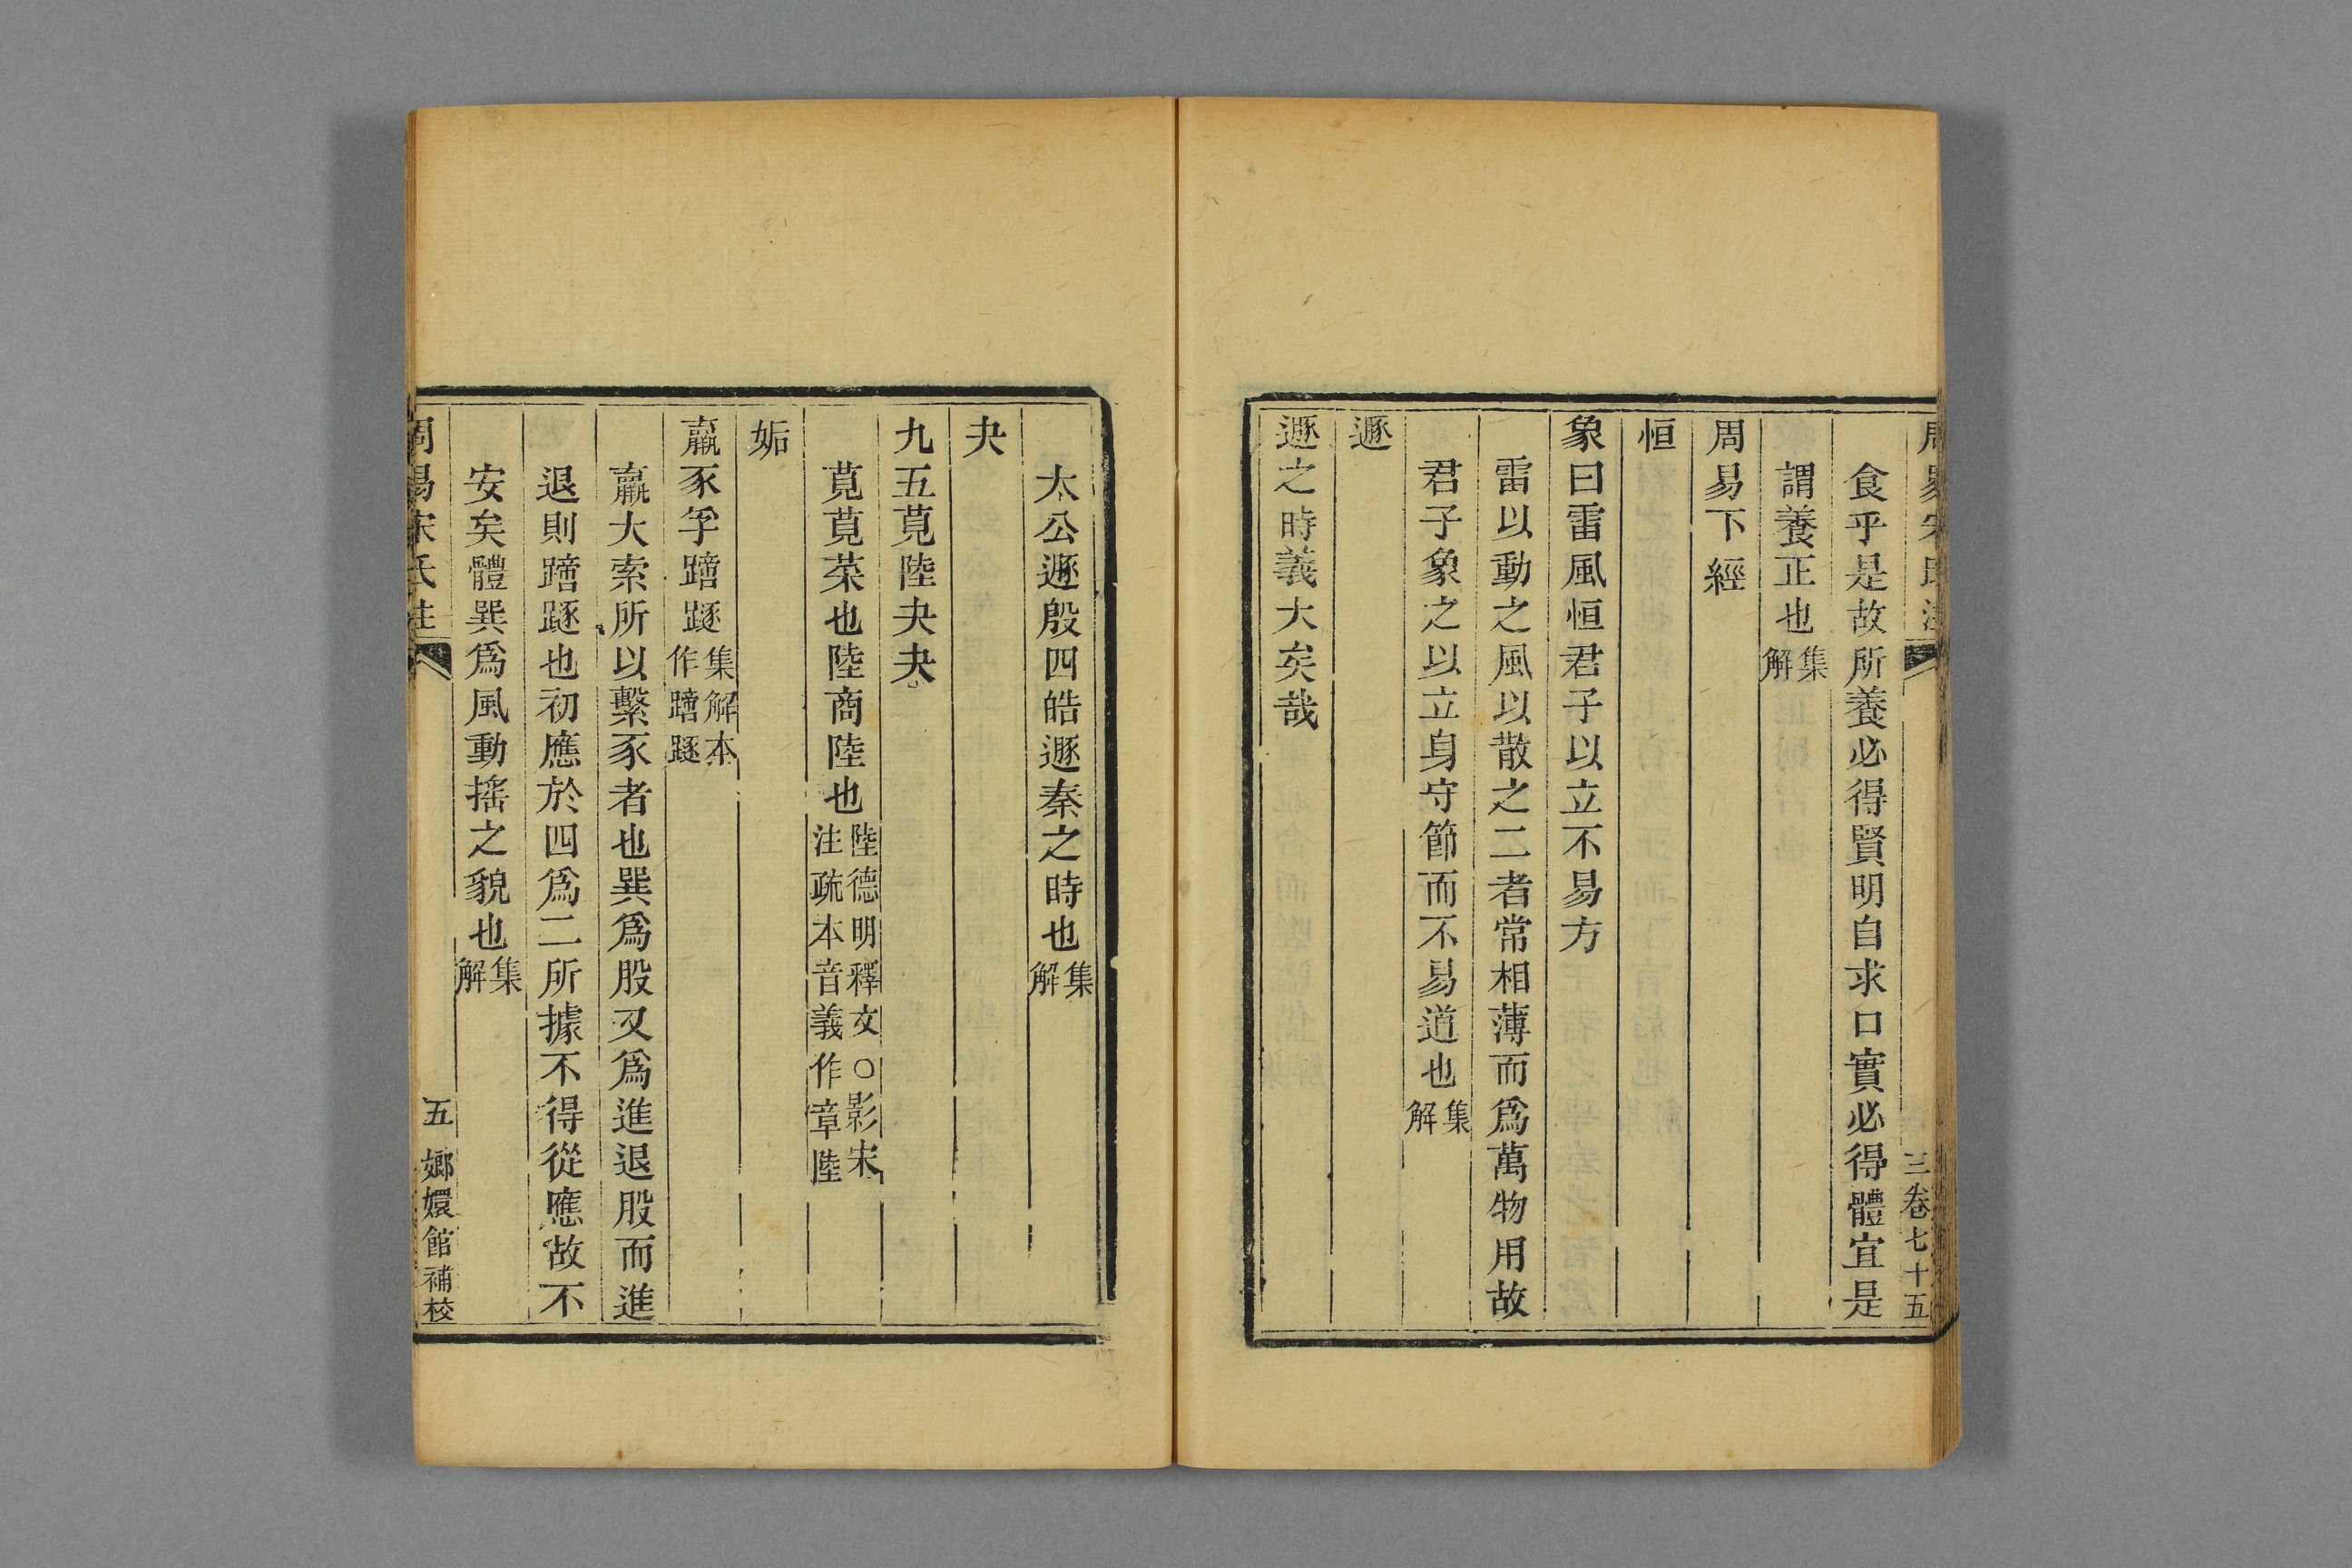 周易宋氏注
三卷七十五
食乎是故所養必得賢明自求口實必得體宜是
謂養正也集解
周易下經
恒
象曰雷風恒君子以立不易方
雷以動之風以散之二者常相薄而爲萬物用故
君子象之以立身守節而不易道也集解
遯
遯之時義大矣哉
太公遯殷四皓遯秦之時也集解
夬
九五莧陸夬夬
莧莧菜也陸商陸也陸德明釋文○影宋注疏本音義作章陸
姤
羸豕孚蹢䠱集解本作蹢䠱
羸大索所以繫豕者也巽爲股又爲進退股而進
退則蹢䠱也初應於四爲二所據不得從應故不
安矣體巽爲風動搖之貌也集解
周易宋氏注
五
嫏嬛館補校